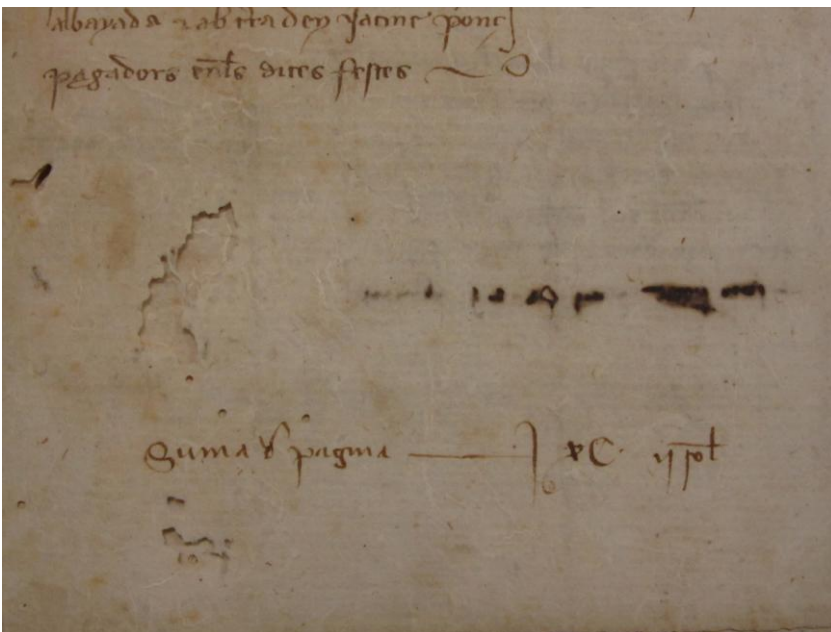 albarada & ab crta den Jacme ponç
pagadors en les dites festes
Suma d pagina xC ij sol